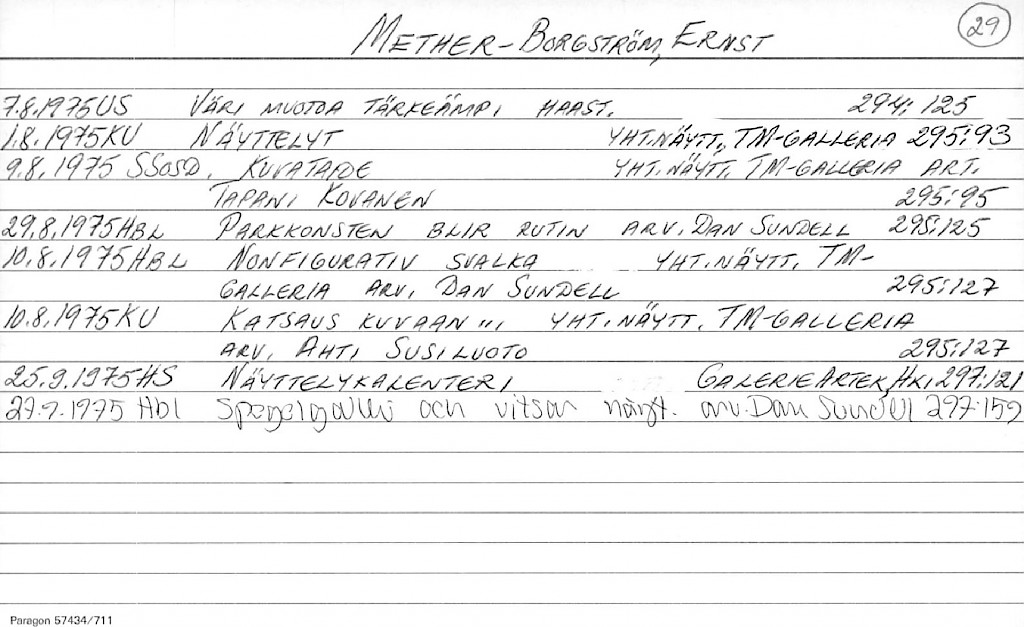 METHER-BORGSTRÖM, ERNST 29
7.8.1975 US VÄRI MUOTOA TÄRKEÄMPI HAAST. 294: 125
1.8.1975 KU NÄYTTELYT YHT.NÄYTT, TM-GALLERIA 295:93
9.8.1975 SSosD. KUVATAIDE YHT.NÄYTT, TM-GALLERIA ART.
TAPANI KOVANEN 295:95
29.8.1975 HBL PARKKONSTEN BLIR RUTIN ARV. DAN SUNDELL 295:125
10.8.1975 HBL NONFIGURATIV SVALKA YHT.NÄYTT, TM-
GALLERIA ARV. DAN SUNDELL 295:127
10.8.1975 KU KATSAUS KUVAAN ... YHT.NÄYTT. TM-GALLERIA
ARV. AHTI SUSILUOTO 295:127
25.9.1975 HS NÄYTTELYKALENTERI GALERIE ARTEK, HKI 297:121
27.9.1975 Hbl och vitsar näyt. arv. Dan Sundell 297:159
Paragon 57434/711